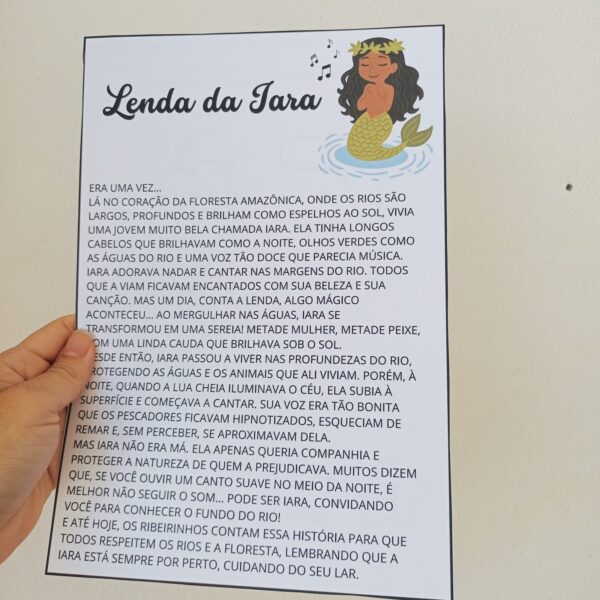 Lenda da Iara
ERA UMA VEZ...
LÁ NO CORAÇÃO DA FLORESTA AMAZÔNICA, ONDE OS RIOS SÃO
LARGOS, PROFUNDOS E BRILHAM COMO ESPELHOS AO SOL, VIVIA
UMA JOVEM MUITO BELA CHAMADA IARA. ELA TINHA LONGOS
CABELOS QUE BRILHAVAM COMO A NOITE, OLHOS VERDES COMO
AS ÁGUAS DO RIO E UMA VOZ TÃO DOCE QUE PARECIA MÚSICA.
IARA ADORAVA NADAR E CANTAR NAS MARGENS DO RIO. TODOS
QUE A VIAM FICAVAM ENCANTADOS COM SUA BELEZA E SUA
CANÇÃO. MAS UM DIA, CONTA A LENDA, ALGO MÁGICO
ACONTECEU... AO MERGULHAR NAS ÁGUAS, IARA SE
TRANSFORMOU EM UMA SEREIA! METADE MULHER, METADE PEIXE,
COM UMA LINDA CAUDA QUE BRILHAVA SOB O SOL.
DESDE ENTÃO, IARA PASSOU A VIVER NAS PROFUNDEZAS DO RIO,
PROTEGENDO AS ÁGUAS E OS ANIMAIS QUE ALI VIVIAM. PORÉM, À
NOITE, QUANDO A LUA CHEIA ILUMINAVA O CÉU, ELA SUBIA À
SUPERFÍCIE E COMEÇAVA A CANTAR. SUA VOZ ERA TÃO BONITA
QUE OS PESCADORES FICAVAM HIPNOTIZADOS, ESQUECIAM DE
REMAR E, SEM PERCEBER, SE APROXIMAVAM DELA.
MAS IARA NÃO ERA MÁ. ELA APENAS QUERIA COMPANHIA E
PROTEGER A NATUREZA DE QUEM A PREJUDICAVA. MUITOS DIZEM
QUE, SE VOCÊ OUVIR UM CANTO SUAVE NO MEIO DA NOITE, É
MELHOR NÃO SEGUIR O SOM... PODE SER IARA, CONVIDANDO
VOCÊ PARA CONHECER O FUNDO DO RIO!
E ATÉ HOJE, OS RIBEIRINHOS CONTAM ESSA HISTÓRIA PARA QUE
TODOS RESPEITEM OS RIOS E A FLORESTA, LEMBRANDO QUE A
IARA ESTÁ SEMPRE POR PERTO, CUIDANDO DO SEU LAR.